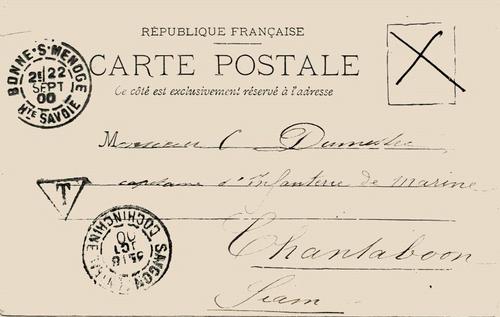 RÉPUBLIQUE FRANÇAISE
CARTE POSTALE
Ce côté est exclusivement réservé à l'adresse
BONNE-S-MENOGE
2E 22
SEPT
00
HTE SAVOIE
Monsieur C Dumestre
capitaine d'infanterie de marine
T
Chantaboon
Siam
SAIGON
COCHINCHINE
OCT
00